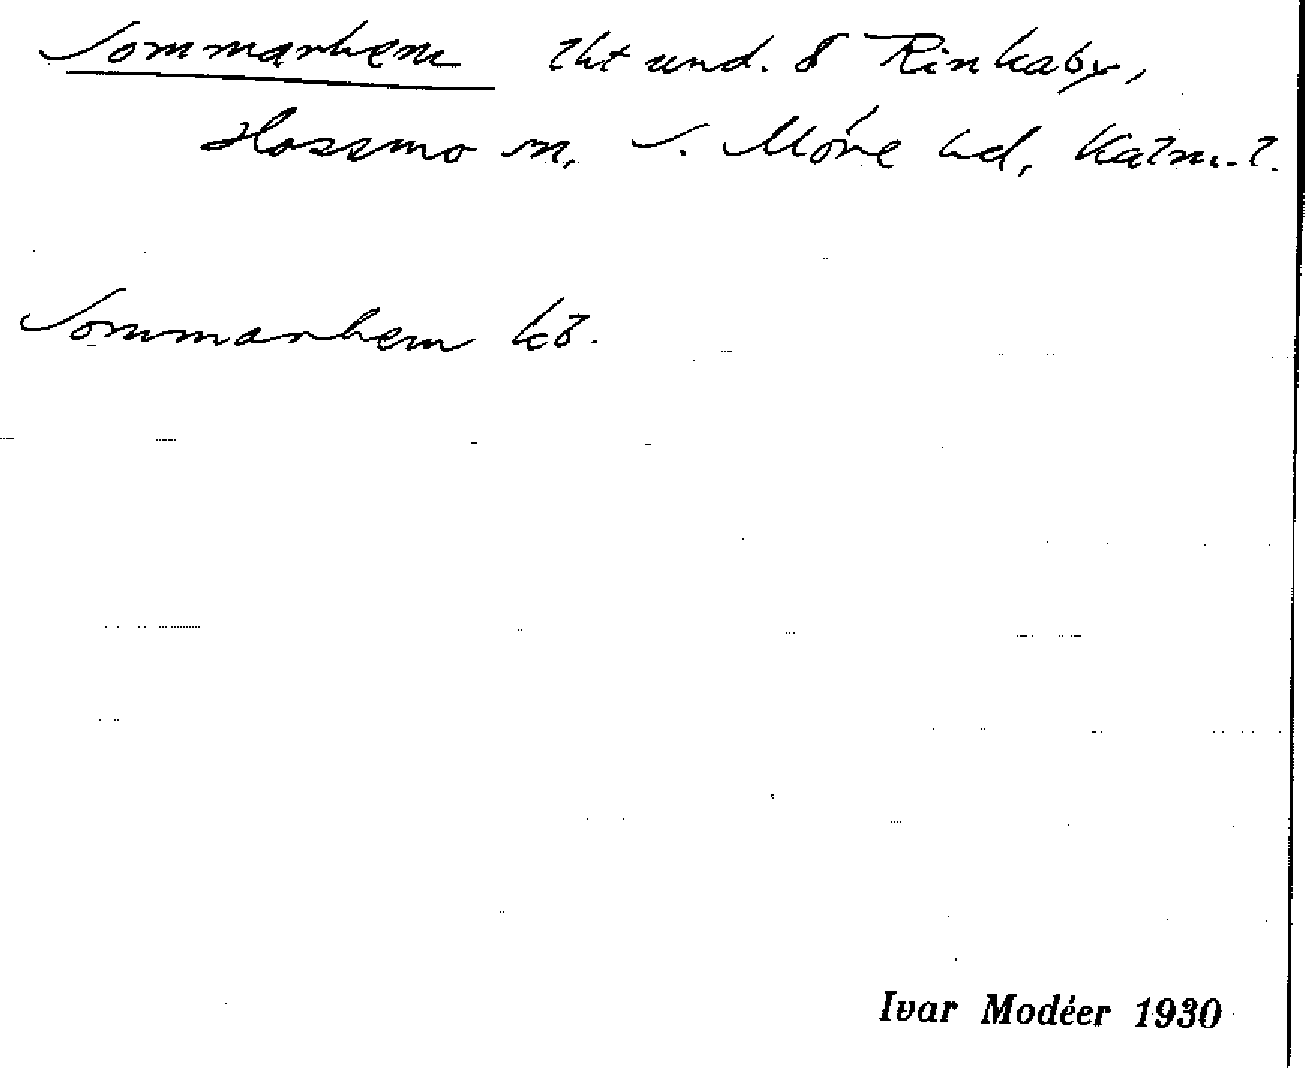 Sommarhem lht und. 8 Rinkaby,
Hossmo sn, S. Möre hd, Kalm. l.
Sommarhem kb.
Ivar Modéer 1930